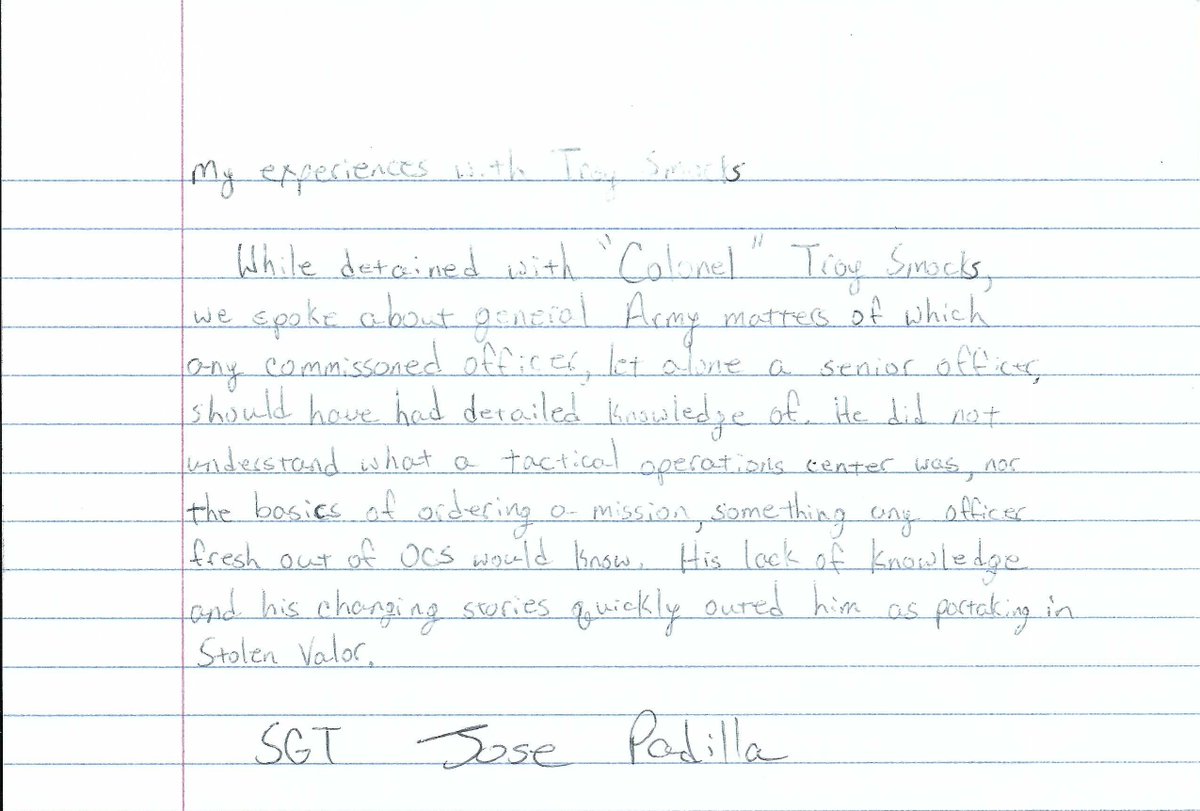 My experiences with Troy Smocks
While detained with "Colonel" Troy Smocks,
we spoke about general Army matters of which
any commissoned officer, let alone a senior officer,
should have had detailed knowledge of. He did not
understand what a tactical operations center was, nor
the basics of ordering a mission, something any officer
fresh out of OCS would know. His lack of knowledge
and his changing stories quickly outed him as partaking in
Stolen Valor.
SGT Jose Padilla